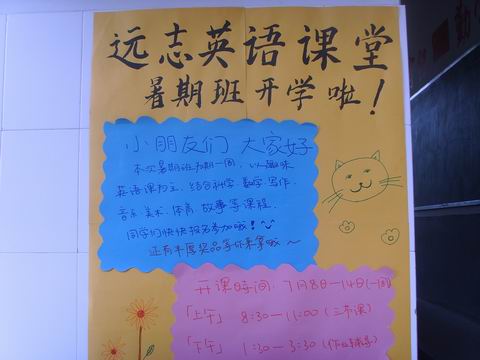 远志英语课堂
暑期班开学啦!
小朋友们 大家好
本次暑期班为期一周, 以趣味
英语课为主, 结合科学、数学、写作、
音乐、美术、体育、故事等课程.
同学们快快报名参加哦!
还有丰厚奖品等你来拿哦~
开课时间: 7月8日—14日(一周)
「上午」 8:30—11:00 (三节课)
「下午」 1:30—3:30 (作业辅导)
勤